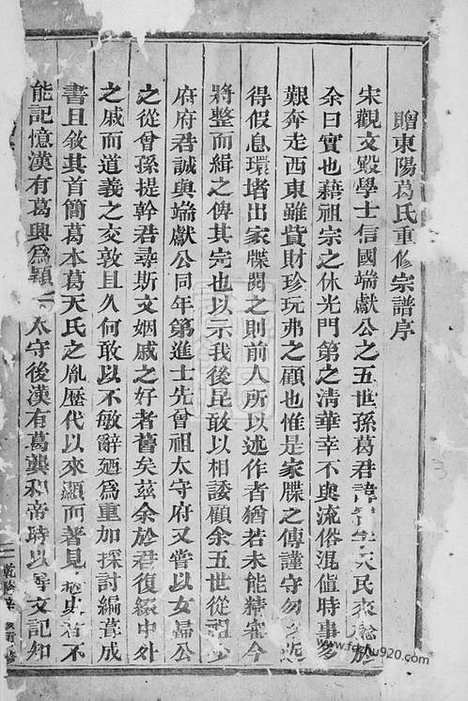 贈東陽葛氏重修宗譜序
宋觀文殿學士信國端獻公之五世孫葛君諱天民來於
余曰實也藉祖宗之休光門第之清華幸不與流俗混值時事多
艱奔走西東雖貲財珍玩弗之顧也惟是家牒之傳謹守勿
得假息環堵出家牒閱之則前人所以述作者猶若未能精審今
將整而緝之俾其完也以示我後昆敢以相諉顧余五世從祖少
府府君誠與端獻公同年第進士先曾祖太守府又嘗以女歸公
之從曾孫提幹君尋斯文姻戚之好者舊矣茲余於君復綴中外
之戚而道義之交敦且久何敢以不敏辭廼為重加採討編葺成
書且敘其首簡葛本葛天氏之胤歷代以來顯而著見史者不
能記憶漢有葛興為潁太守後漢有葛龔和帝時以善文記知
www.fozhu920.com